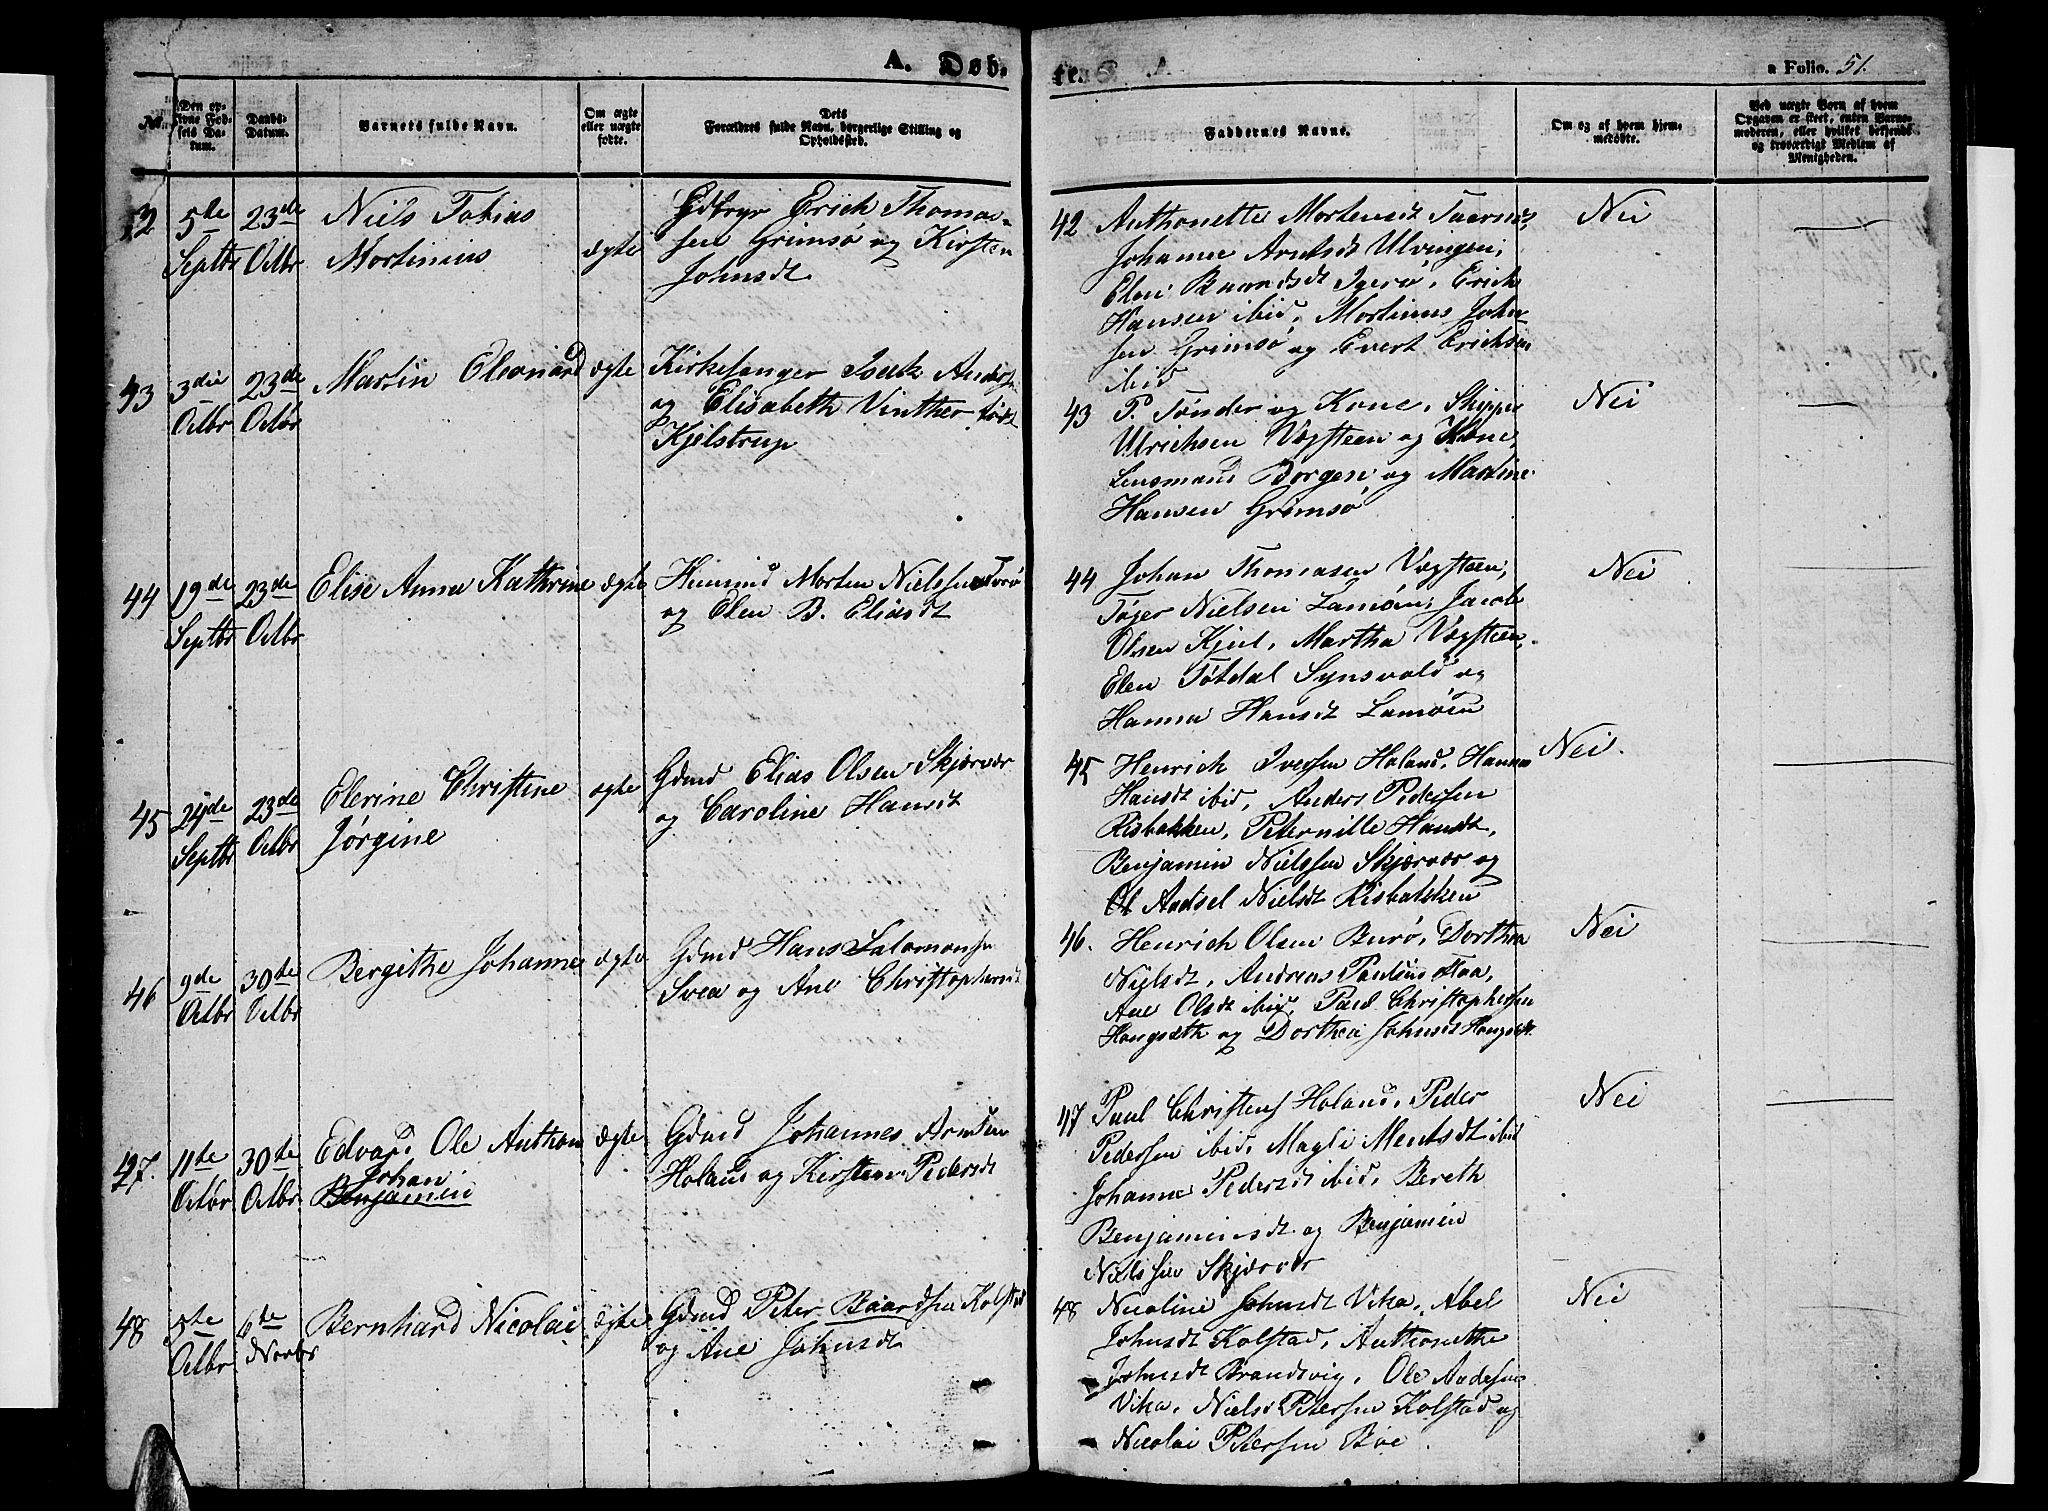 A. Døb-
te. A.
a Folio. 51.
No.
Den op-
givne Fød-
sels Da-
tum.
Daabs-
Datum.
Barnets fulde Navn.
Om ægte
eller uægte
fødte.
Dets
Forældres fulde Navn, borgerlige Stilling og
Opholdssted.
Faddernes Navne.
Om og af hvem hjem-
medøbte.
Ved uægte Børn af hvem
Opgaven er skeet, enten Barne-
moderen, eller hvilket bekjendt
og troværdigt Medlem af
Menigheden.
42
5te
Septbr
23de
Octbr
Niels Tobias
Mortinius
ægte
Erich Thomas-
sen Grimsø og Kirsten
Johnsdt
42 Anthonette Mortensdt
Johanne Arntsdt Ulvingen,
Elen Igerø, Erich
Hansen ibid, Mortinus John-
sen Grimsø og Evert Erichsen
ibid
Nei
43
3die
Octbr
23de
Octbr
Martin Eleonard
ægte
Kirkesanger Isak Anders
og Elisabeth Vinther født
Kjelstrup
43 P. Tønder og Kone, Skipper
Ulrichsen Vægsteen og Kone,
Lensmand Borgen og Martine
Hansen Grimsø
Nei
44
19de
Septbr
23de
Octbr
Elise Anna Kathrine
ægte
Huusmd Morten Nielssen
og Elen B. Eliasdt
44 Johan Thomasen Vægsteen,
Tøger Nielsen Lamøen, Jacob
Olsen Kjul, Martha Vægsteen,
Elen Tøtdal Synsvold og
Hanna Hansdt Lamøen
Nei
45
24de
Septbr
23de
Octbr
Elerine Christine
Jørgine
ægte
Gdmd Elias Olsen Skjærvær
og Caroline Hansdt
45 Henrich Iversen Holand, Hanna
Hansdt ibid, Anders Pedersen
Risbakken, Peternille Hansdt,
Benjamin Nielssen Skjærvær og
Nielsdt Risbakken
Nei.
46
9de
Octbr
30te
Octbr
Bergithe Johanne
ægte
Gdmd Hans Salomonsen
Svea og Ane Christophersdt
46. Henrich Olsen Burø, Dorthea
Nielsdt, Andreas Paulsen Haa,
Ane Olsdt ibid, Paul Christophersen
Hongsæth og Dorthea Johnsdt Hongsæt.
Nei
47.
11te
Octbr
30te
Octbr
Edvard Ole Anthon
Johan
Benjamin
ægte
Gdmd Johannes Arntsen
Holand og Kirsten Pedersdt
47 Paul Christens Holand, Peder
Pedersen ibid, Magli Mentsdt ibid
Johanna Pedersdt ibid, Bereth
Benjaminsdt og Benjamin
Nielssen Skjærvær
Nei
48
5te
Octbr
6te
Novbr
Bernhard Nicolai
ægte
Gdmd Peter Baardsen Kolstad
og Ane Johnsdt
48 Nicoline Johnsdt Vika, Abel
Johnsdt Kolstad, Anthonethe
Johnsdt Brandsvig, Ole Andersen
Vika, Niels Petersen Kolstad og
Nicolai Petersen Bøe.
Nei